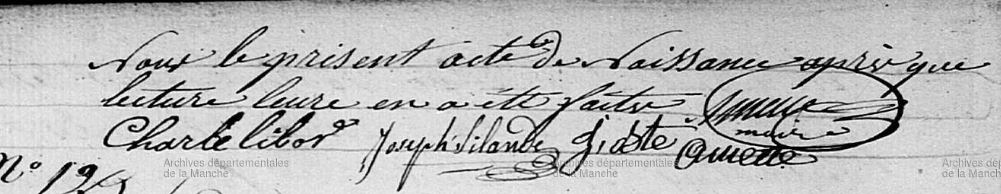 Nous le présent acte de Naissance après que
lecture leure en a été faite.
maire
Charle libor Joseph
N° 12
Archives départementales
de la Manche
Archives départementales
de la Manche
Archives dépa
de la Manche